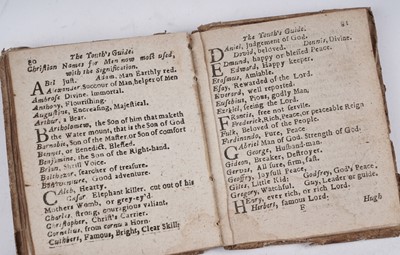 80 The Youth's Guide.
Christian Names for Men now most used,
with the Signification.
ABel Just. Adam, Man Earthly red.
Alexander, Succour of Man, helper of Men
Ambrose, Divine, Immortal.
Anthony, Flourishing.
Augustine, Encreasing, Majestical.
Arthur, a Bear.
Bartholomew, the Son of him that maketh
the Water mount, that is the Son of God
Barnabie, Son of the Master, or Son of comfort
Bennet, or Benedict, Blessed.
Benjamine, the Son of the Right-hand.
Brian, Shrill Voice.
Balthazar, searcher of treasure.
Good adventure.
CAleb, Hearty.
Cæsar Elephant killer, cut out of his
Mothers Womb, or grey-ey'd.
Charles, strong, couragious valiant.
Christopher, Christ's Carrier.
Cornelius, from cornu a Horn.
Cuthbert, Famous, Bright, Clear Skill;
The Youth's Guide. 81
DAniel, Judgement of God.
Druid, beloved. Dennis, Divine.
EDmund, happy or blessed Peace.
Edward, Happy keeper.
Erasmus, Amiable.
Esay, Rewarded of the Lord.
Everard, well reported.
Eusebius, Pious, godly Man.
Ezekiel, seeing the Lord.
FRancis, free not servile.
Frederick, Rich Peace, or peaceable Reign
Fulk, Beloved of the People.
Ferdinando, Pure, Peace
GAbriel Man of God, Strength of God;
George, Husband-man.
Gideon, Breaker, Destroyer.
Gervas, All sure, firm, fast.
Geoffrey, Joyfull Peace.
Giles, Little Kid; Godfrey, God's Peace.
Gregory, Watchful. Guy, Leader or guide.
HEnry, ever rich, or rich Lord.
Herbert, famous Lord.
F Hugh